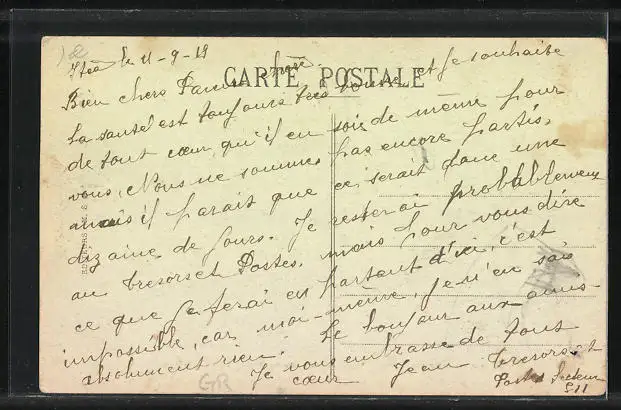 Itéa le 11-9-19
CARTE POSTALE
Bien chers Parents chéri.
La santé est toujours très bonne et je souhaite
de tout cœur qu'il en soit de même pour
vous. Nous ne sommes pas encore partis,
mais il parait que ce serait dans une
dizaine de jours. Je resterai probablement
au tresors et Postes, mais pour vous dire
ce que je ferai en partant d'ici, c'est
impossible, car moi-même, je n'en sais
absolument rien. Le bonjour aux amis.
Je vous embrasse de tout
cœur Jean tresors et
Postes Secteur
511
GR